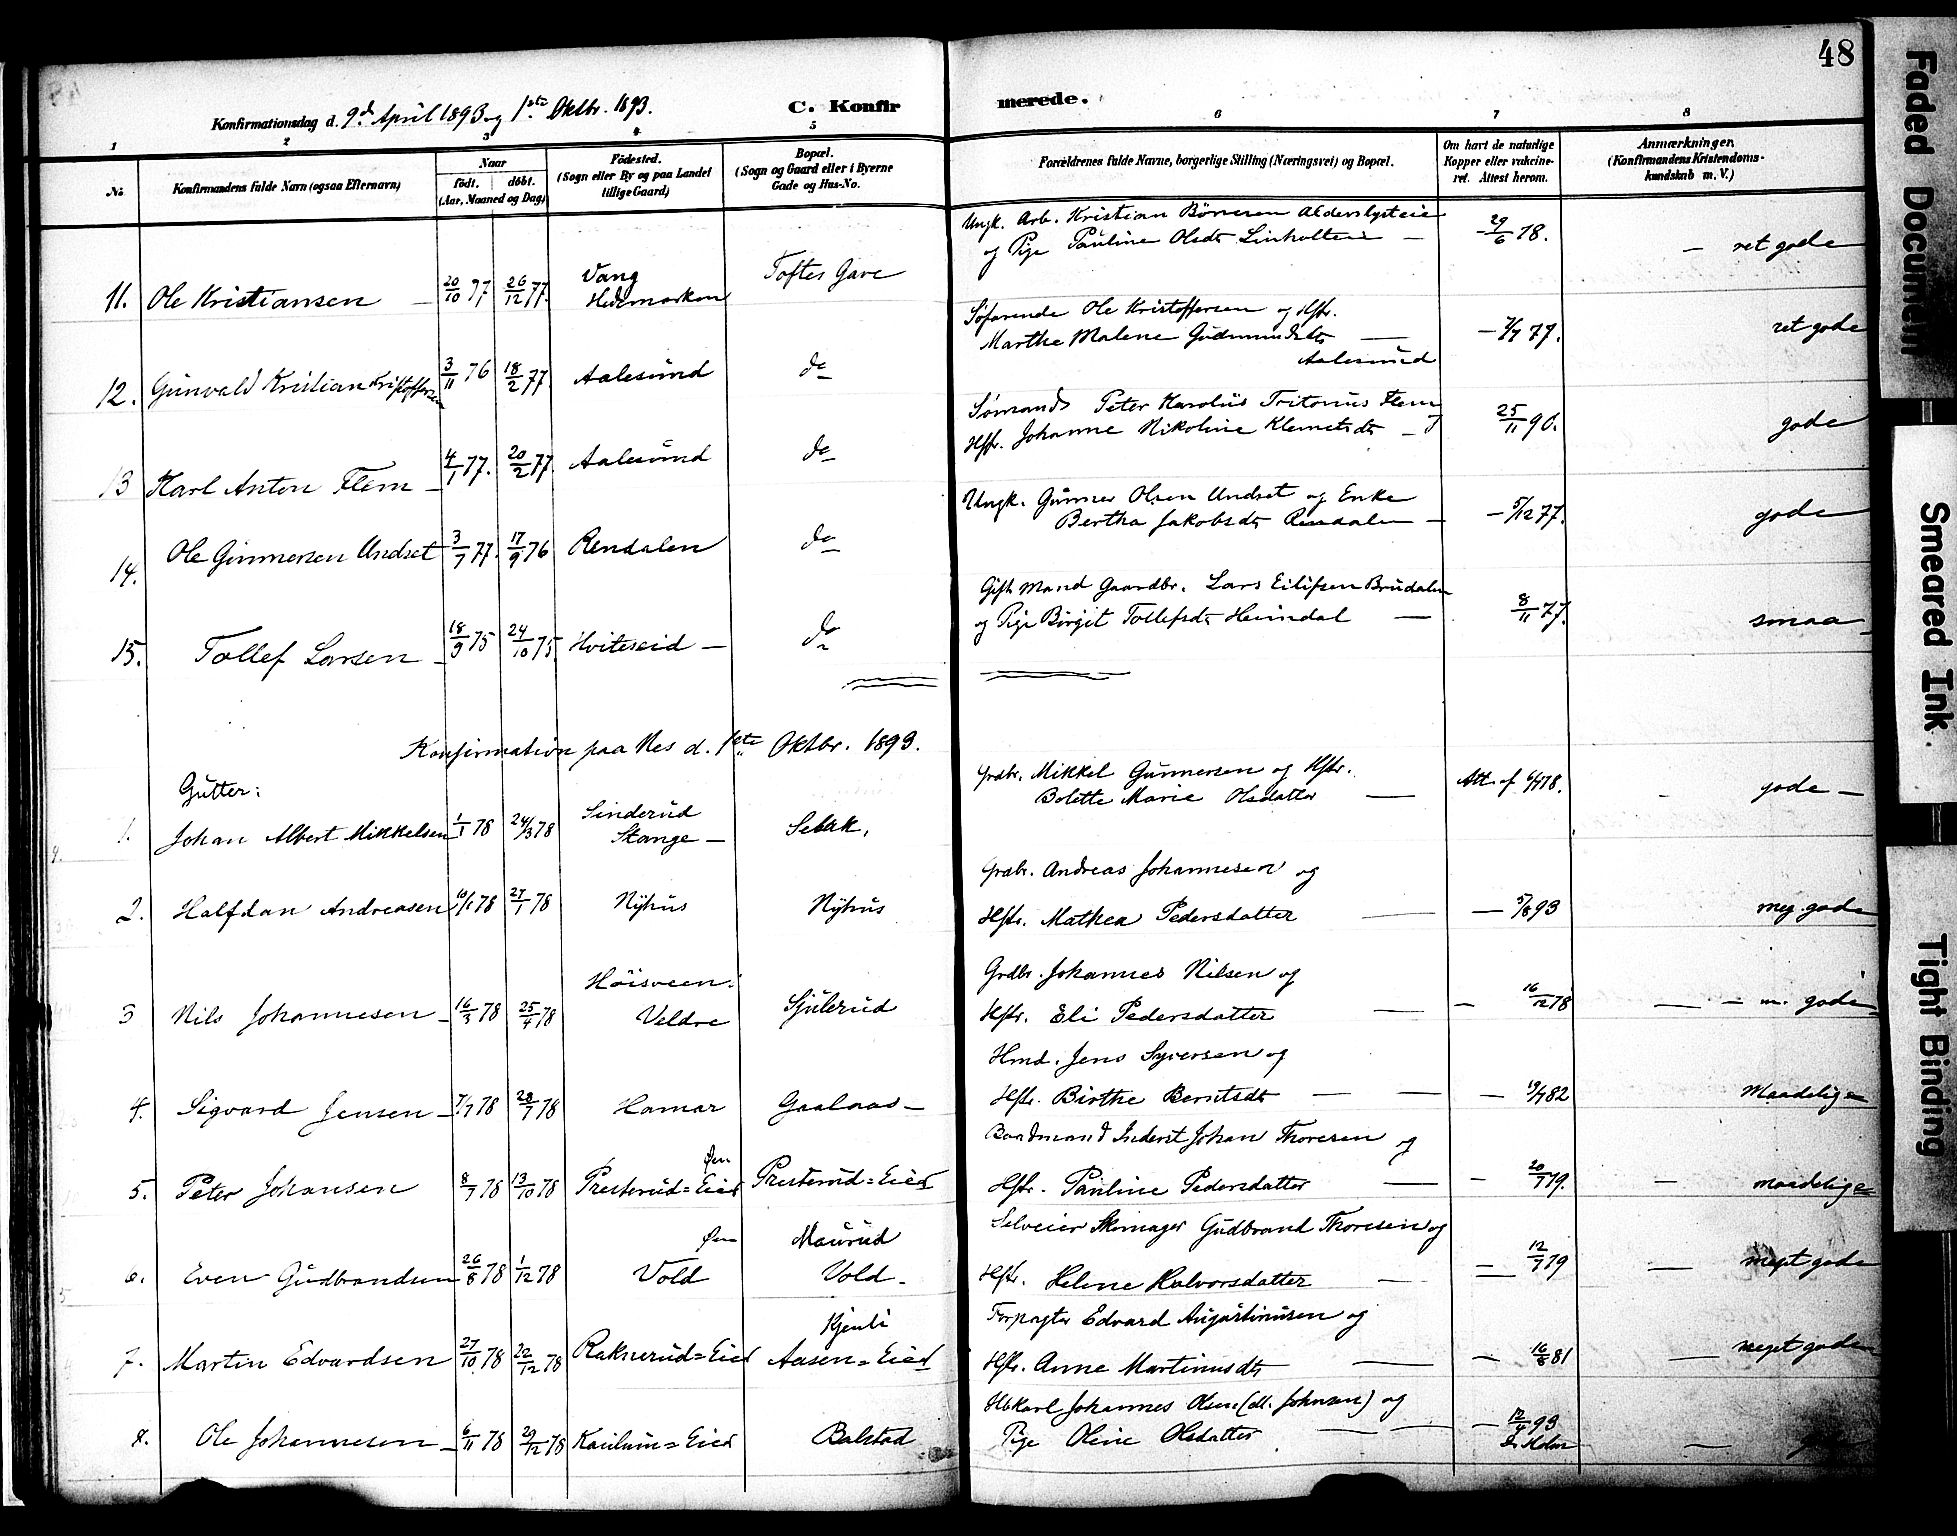 48
Konfirmationsdag d. 9d April 1893 og 1ste Oktbr. 1893.
C. Konfirmerede.
1 2 3 4 5 6 7 8
No
Konfirmandens fulde Navn (ogsaa Efternavn)
Naar
født. døbt.
(Aar, Maaned og Dag)
Födested.
(Sogn eller By og paa Landet
tillige Gaard)
Bopæl.
(Sogn og Gaard eller i Byerne
Gade og Hus-No.
Forældrenes fulde Navne, borgerlige Stilling (Næringsvei) og Bopæl.
Om havt de naturlige
Kopper eller vakcine-
ret. Attest herom.
Anmærkninger.
(Konfirmandens Kristendoms-
kundskab m. V.)
Ungk. Arb. Kristian Börresen Alderslysteie
og Pige Pauline Olsdt Linholteie —
11. Ole Kristiansen — 20/10 77 26/12 77 Vang Hedemarken Toftes Gave — 29/6 78. — ret gode
Søfarende Ole Kristoffersen og Hstr.
Marthe Malene Gudmundsdtr —
Aalesund
12. Gunvald Kristian Kristoffersen 3/11 76 18/2 77 Aalesund do — 7/7 77. ret gode
Sømand Peter Karolus Tritonius Flem og
Hstr. Johanne Nikoline Klemetsdtr —
13 Karl Anton Flem — 4/1 77. 20/2 77 Aalesund do 25/11 90. gode
Ungk. Gunner Olsen Undset og Enke
Bertha Jakobsdtr Rendalen —
14. Ole Gunnersen Undset 3/7 77. 17/9 76 Rendalen do — 5/12 77. gode
Gift Mand Gaardbr. Lars Eilifsen Brudalen
og Pige Birgit Tollefsdtr Heimdal —
15. Tollef Larsen — 18/9 75 24/10 75 Hviteseid — do 8/11 77. smaa
Konfirmation paa Nes d. 1ste Oktbr. 1893.
Gutter:
Grdbr. Mikkel Gunnersen og Hstr.
Bolette Marie Olsdatter —
1. Johan Albert Mikkelsen 1/1 78 24/3 78 Sinderud Stange — Att. af 78. gode —
Grdbr. Andreas Johannesen og
Hstr. Mathea Pedersdatter —
2. Halfdan Andreasen 10/1 78 27/1 78 Nyhus Nyhus — 5/8 93 meg. gode
Grdbr. Johannes Nilsen og
Hstr. Eli Pedersdatter —
3 Nils Johannesen — 16/3 78 25/4 78 Høisveen: Veldre Sjulerud — 16/12 78 — m. gode
Hmd. Jens Syversen og
Hstr. Birthe Berntsdtr —
4. Sigvard Jensen — 7/7 78 28/7 78 Hamar Gaalaas — — 19/7 82 Maadelige
Baadmand Inderst Johan Thoresen og
Hstr. Pauline Pedersdatter —
5. Peter Johansen 8/7 78 13/10 78 Presterud=Eie Øen Presterud=Eie — 20/7 79. — maadelige
Selveier Skomager Gudbrand Thoresen og
Hstr. Helene Halvorsdatter —
6. Even Gudbrandsen 26/8 78 1/12 78 Øen Vold Maurud Vold — — 12/7 79 — meget gode
Forpagter Edvard Augustinusen og
Hstr. Anne Martinusdtr —
7. Martin Edvardsen 27/10 78 22/12 78 Raknerud=Eie Kjenli Aasen=Eie — 16/8 81 — meget gode
Johannes Olsen (ell. Johnsen) og
Pige Oline Olsdatter —
8. Ole Johannesen — 6/11 78 29/12 78 =Eie Balstad — 12/4 93 Dr Holm —
Faded Document
Smeared Ink.
Tight Binding